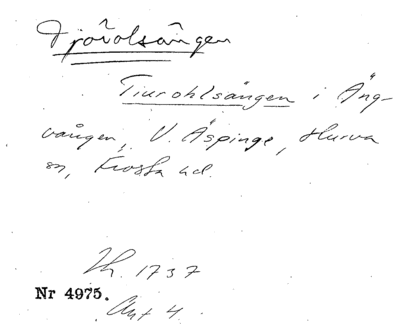 Tjövolsången
Tiurohlsången i Äng-
vången, V. Äspinge, Hurva
sn, Frosta hd.
Lh. 1737
Nr 4975.
Akt 4.